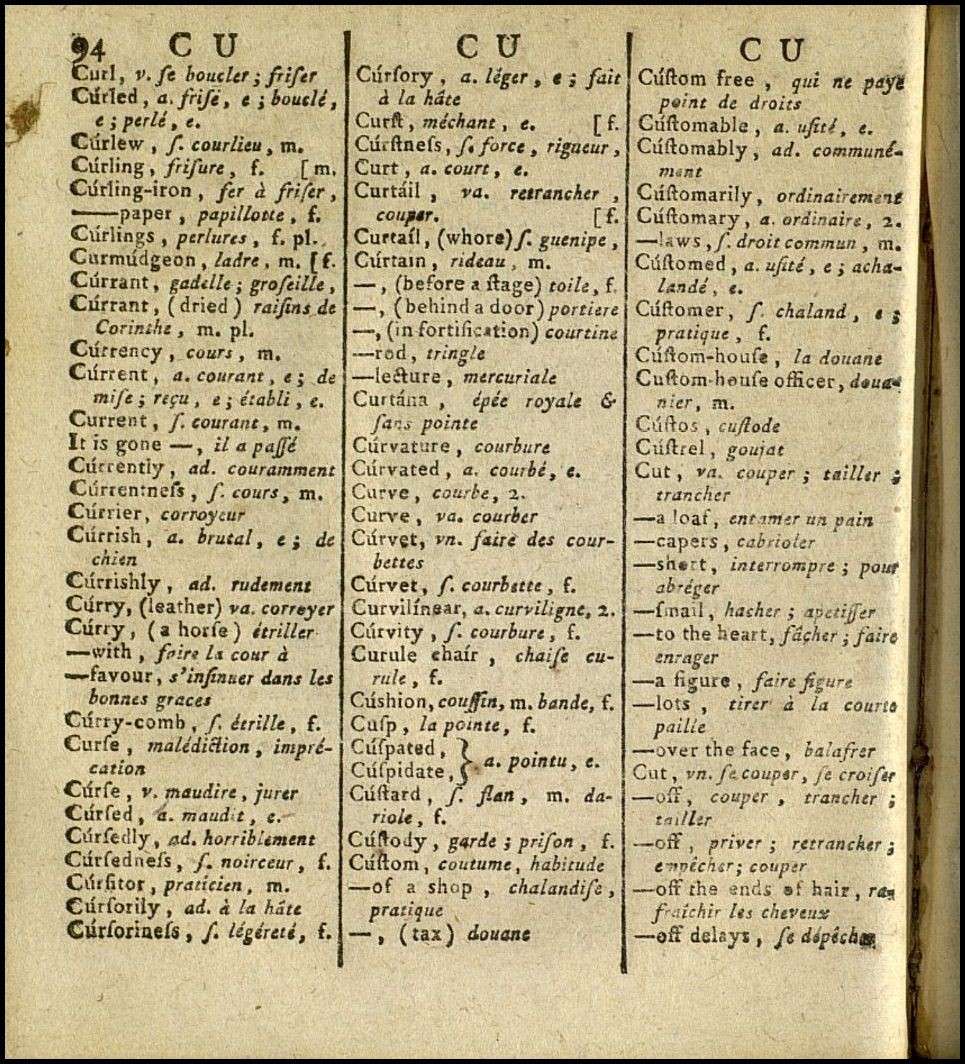 94 C U
Curl, v. ſe boucler ; friſer
Cúrled, a. friſé, e ; bouclé,
e ; perlé, e.
Cúrlew, ſ. courlieu, m.
Cúrling, friſure, f. [m.
Cúrling-iron, fer à friſer,
——paper, papillotte, f.
Cúrlings, perlures, f. pl.
Curmúdgeon, ladre, m. [f.
Cúrrant, gadelle ; groſeille,
Cúrrant, (dried) raiſins de
Corinthe, m. pl.
Cúrrency, cours, m.
Cúrrent, a. courant, e ; de
miſe ; reçu, e ; établi, e.
Current, ſ. courant, m.
It is gone —, il a paſſé
Cúrrently, ad. couramment
Cúrrentneſs, ſ. cours, m.
Cúrrier, corroyeur
Cúrrish, a. brutal, e ; de
chien
Cúrrishly, ad. rudement
Cúrry, (leather) va. correyer
Cúrry, (a horſe) étriller
—with, faire la cour à
—favour, s'inſinuer dans les
bonnes graces
Cúrry-comb, ſ. étrille, f.
Curſe, malédiction, impré-
cation
Cúrſe, v. maudire, jurer
Cúrſed, a. maudit, e.
Cúrſedly, ad. horriblement
Cúrſedneſs, ſ. noirceur, f.
Cúrſitor, praticien, m.
Cúrſorily, ad. à la hâte
Cúrſorineſs, ſ. légéreté, f.
C U
Cúrſory, a. léger, e ; fait
à la hâte
Curſt, méchant, e. [f.
Cúrſtneſs, ſ. force, rigueur,
Curt, a. court, e.
Curtáil, va. retrancher,
couper. [f.
Curtaíl, (whore) ſ. guenipe,
Cúrtain, rideau, m.
—, (before a ſtage) toile, f.
—, (behind a door) portiere
—, (in fortification) courtine
—rod, tringle
—lecture, mercuriale
Curtána, épée royale &
ſans pointe
Cúrvature, courbure
Cúrvated, a. courbé, e.
Curve, courbe, 2.
Curve, va. courber
Cúrvet, vn. faire des cour-
bettes
Cúrvet, ſ. courbette, f.
Curvilínear, a. curviligne, 2.
Cúrvity, ſ. courbure, f.
Curule chaír, chaiſe cu-
rule, f.
Cúshion, couſſin, m. bande, f.
Cuſp, la pointe, f.
Cúſpated, } a. pointu, e.
Cúſpidate,
Cúſtard, ſ. flan, m. da-
riole, f.
Cúſtody, garde ; priſon, f.
Cúſtom, coutume, habitude
—of a shop, chalandiſe,
pratique
—, (tax) douane
C U
Cúſtom free, qui ne paye
point de droits
Cúſtomable, a. uſité, e.
Cúſtomably, ad. communé-
ment
Cúſtomarily, ordinairement
Cúſtomary, a. ordinaire, 2.
—laws, ſ. droit commun, m.
Cúſtomed, a. uſité, e ; acha-
landé, e.
Cúſtomer, ſ. chaland, e ;
pratique, f.
Cúſtom-houſe, la douane
Cuſtom-houſe officer, doua-
nier, m.
Cúſtos, cuſtode
Cúſtrel, goujat
Cut, va. couper ; tailler ;
trancher
—a loaf, entamer un pain
—capers, cabrioler
—short, interrompre ; pour
abréger
—ſmall, hacher ; apetiſſer
—to the heart, fâcher ; faire
enrager
—a figure, faire figure
—lots, tirer à la courte
paille
—over the face, balafrer
Cut, vn. ſe couper, ſe croiſer
—off, couper, trancher ;
tailler
—off, priver ; retrancher ;
empêcher ; couper
—off the ends of hair, ra-
fraîchir les cheveux
—off delays, ſe dépêcher